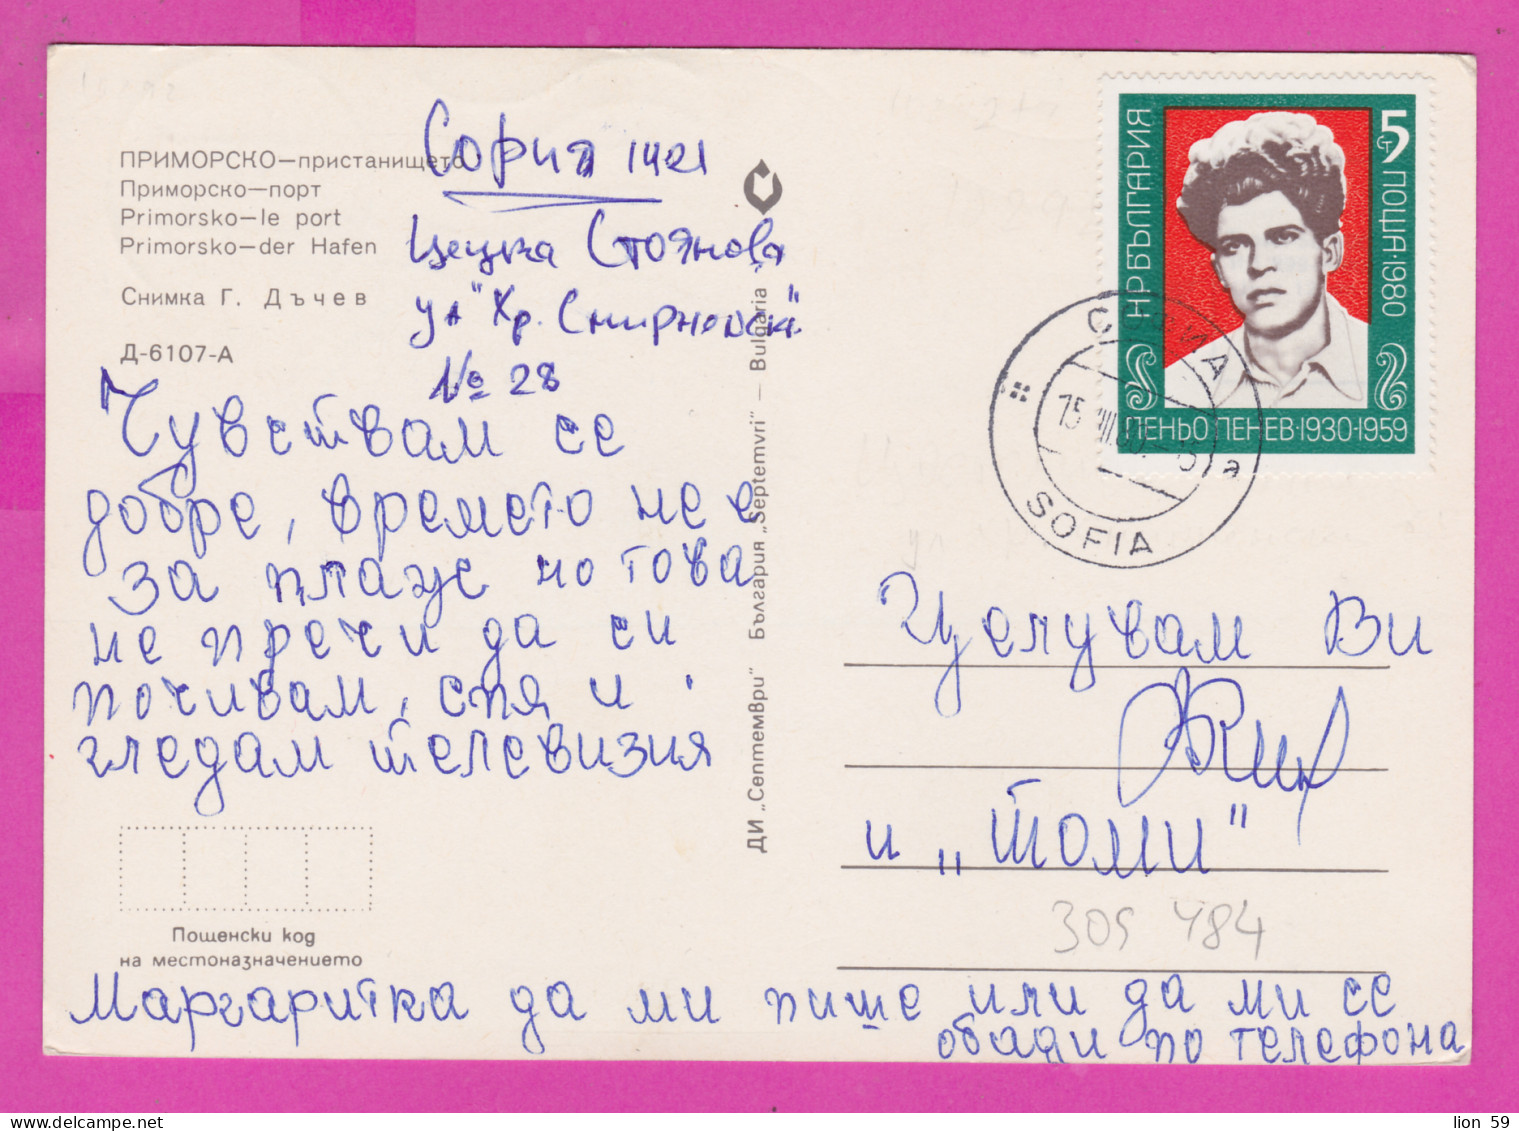 ПРИМОРСКО—пристанището
Приморско—порт
Primorsko—le port
Primorsko—der Hafen
Снимка Г. Дъчев
Д-6107-А
София 1421
Цецка Стоянова
ул "Хр. Смирненски"
№ 28
Чувствам се
добре, времето не е
за плаж но това
не пречи да си
почивам, спя и
гледам телевизия
Пощенски код
на местоназначението
ДИ „Септември" България „Septemvri" — Bulgaria
НР БЪЛГАРИЯ
5 СТ ПОЩА·1980
ПЕНЬО ПЕНЕВ·1930·1959
СОФИЯ
15
SOFIA
Целувам Ви
и „Томи"
305 484
Маргаритка да ми пише или да ми се
обади по телефона
lion 59